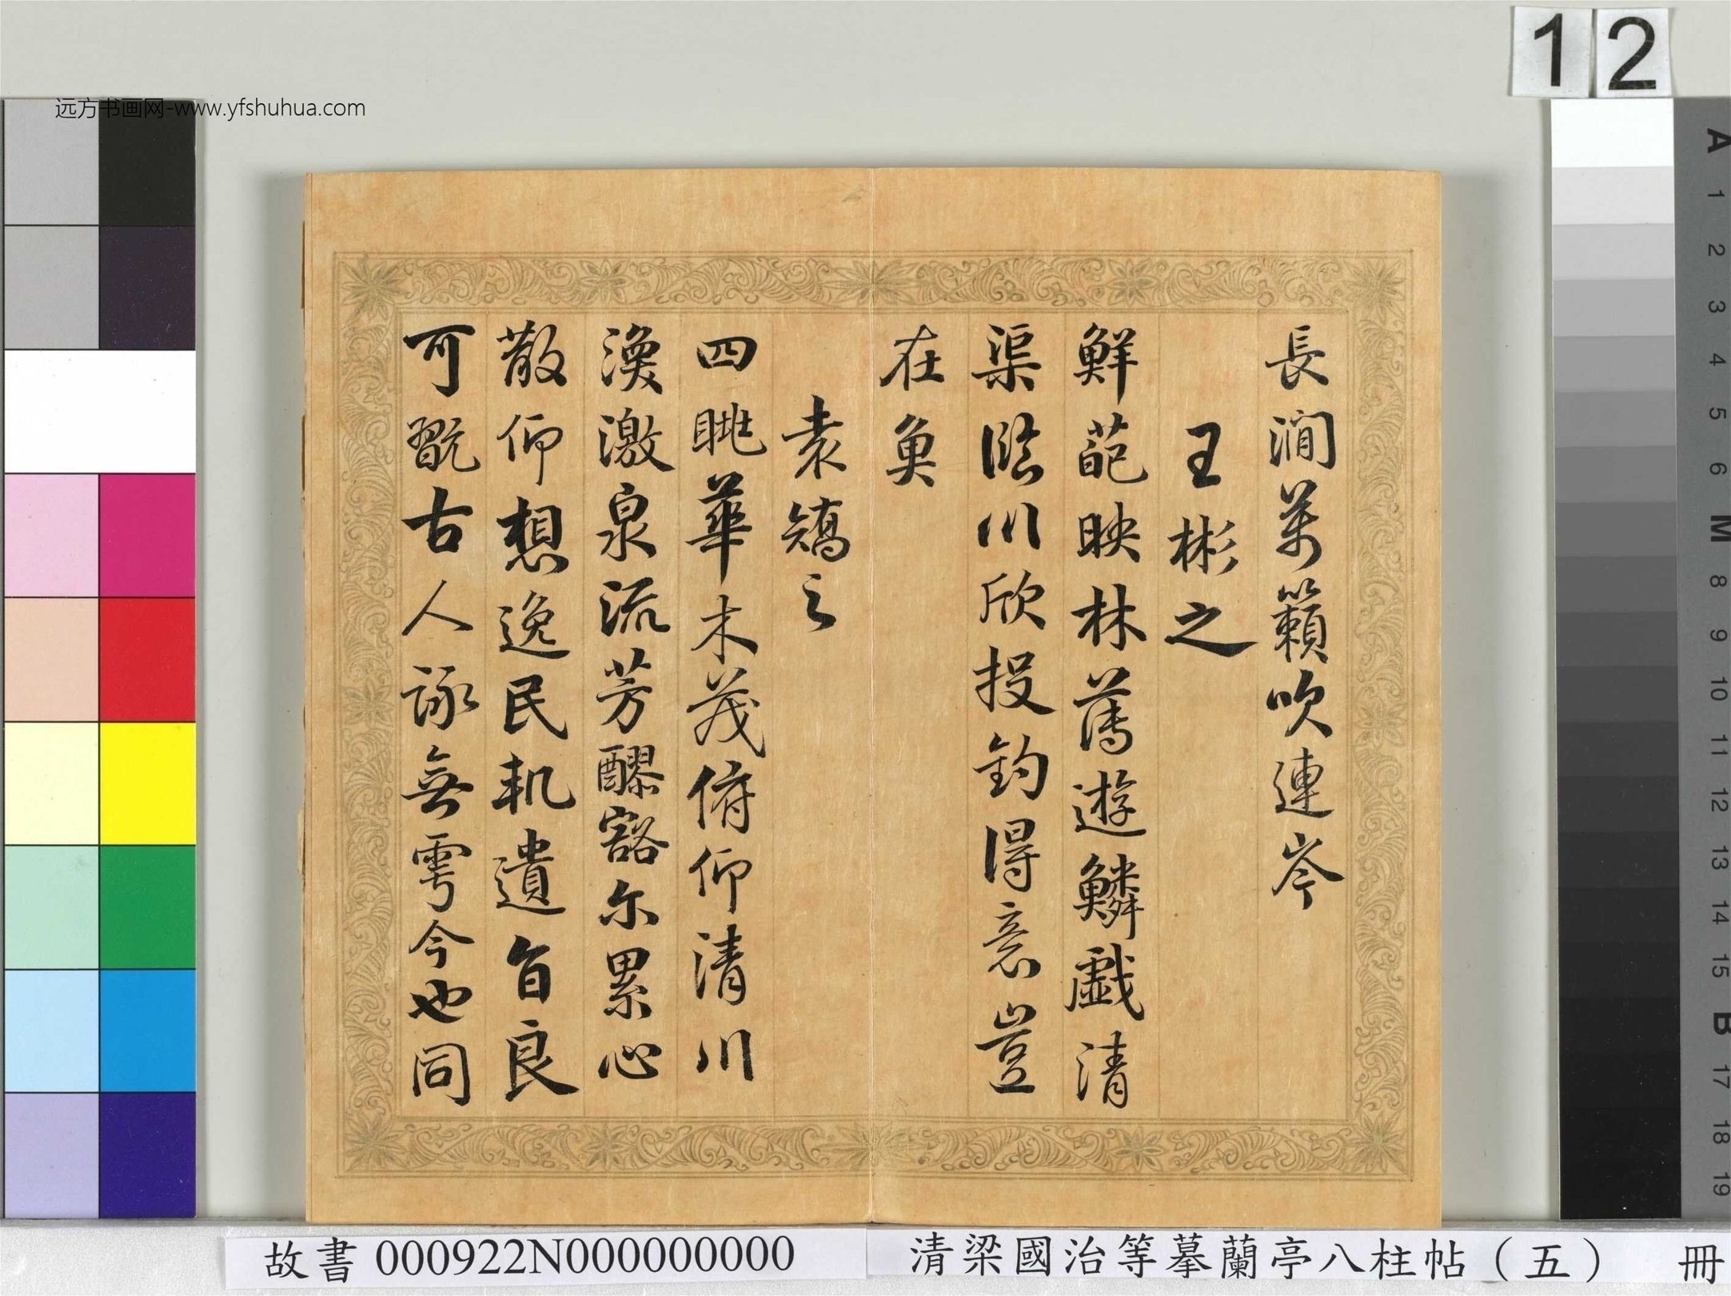 远方书画网-www.yfshuhua.com
12
長澗萬籟吹連岑
王彬之
鮮葩映林薄遊鱗戲清
渠臨川欣投釣得意豈
在魚
袁矯之
四眺華木茂俯仰清川
渙激泉流芳醪豁尔累心
散仰想逸民軌遺音良
可翫古人詠無雩今也同
A 1 2 3 4 5 6 M 8 9 10 11 12 13 14 15 B 17 18 19
故書 000922N000000000
清梁國治等摹蘭亭八柱帖（五） 冊